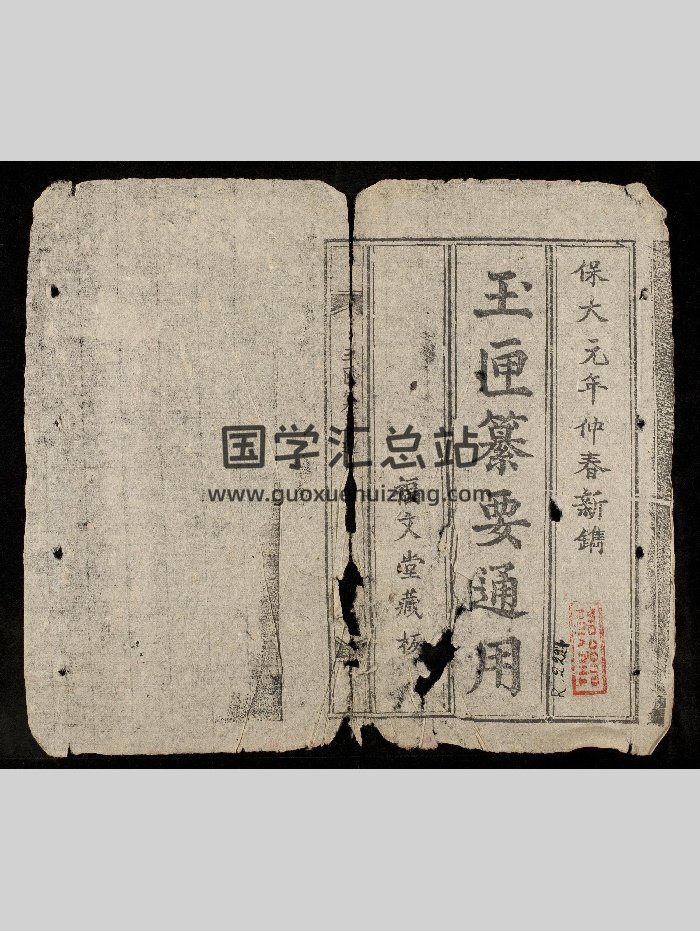 保大元年仲春新鐫
玉匣纂要通用
福文堂藏板
THƯ VIỆN
QUỐC GIA
国学汇总站
www.guoxuehuizong.com